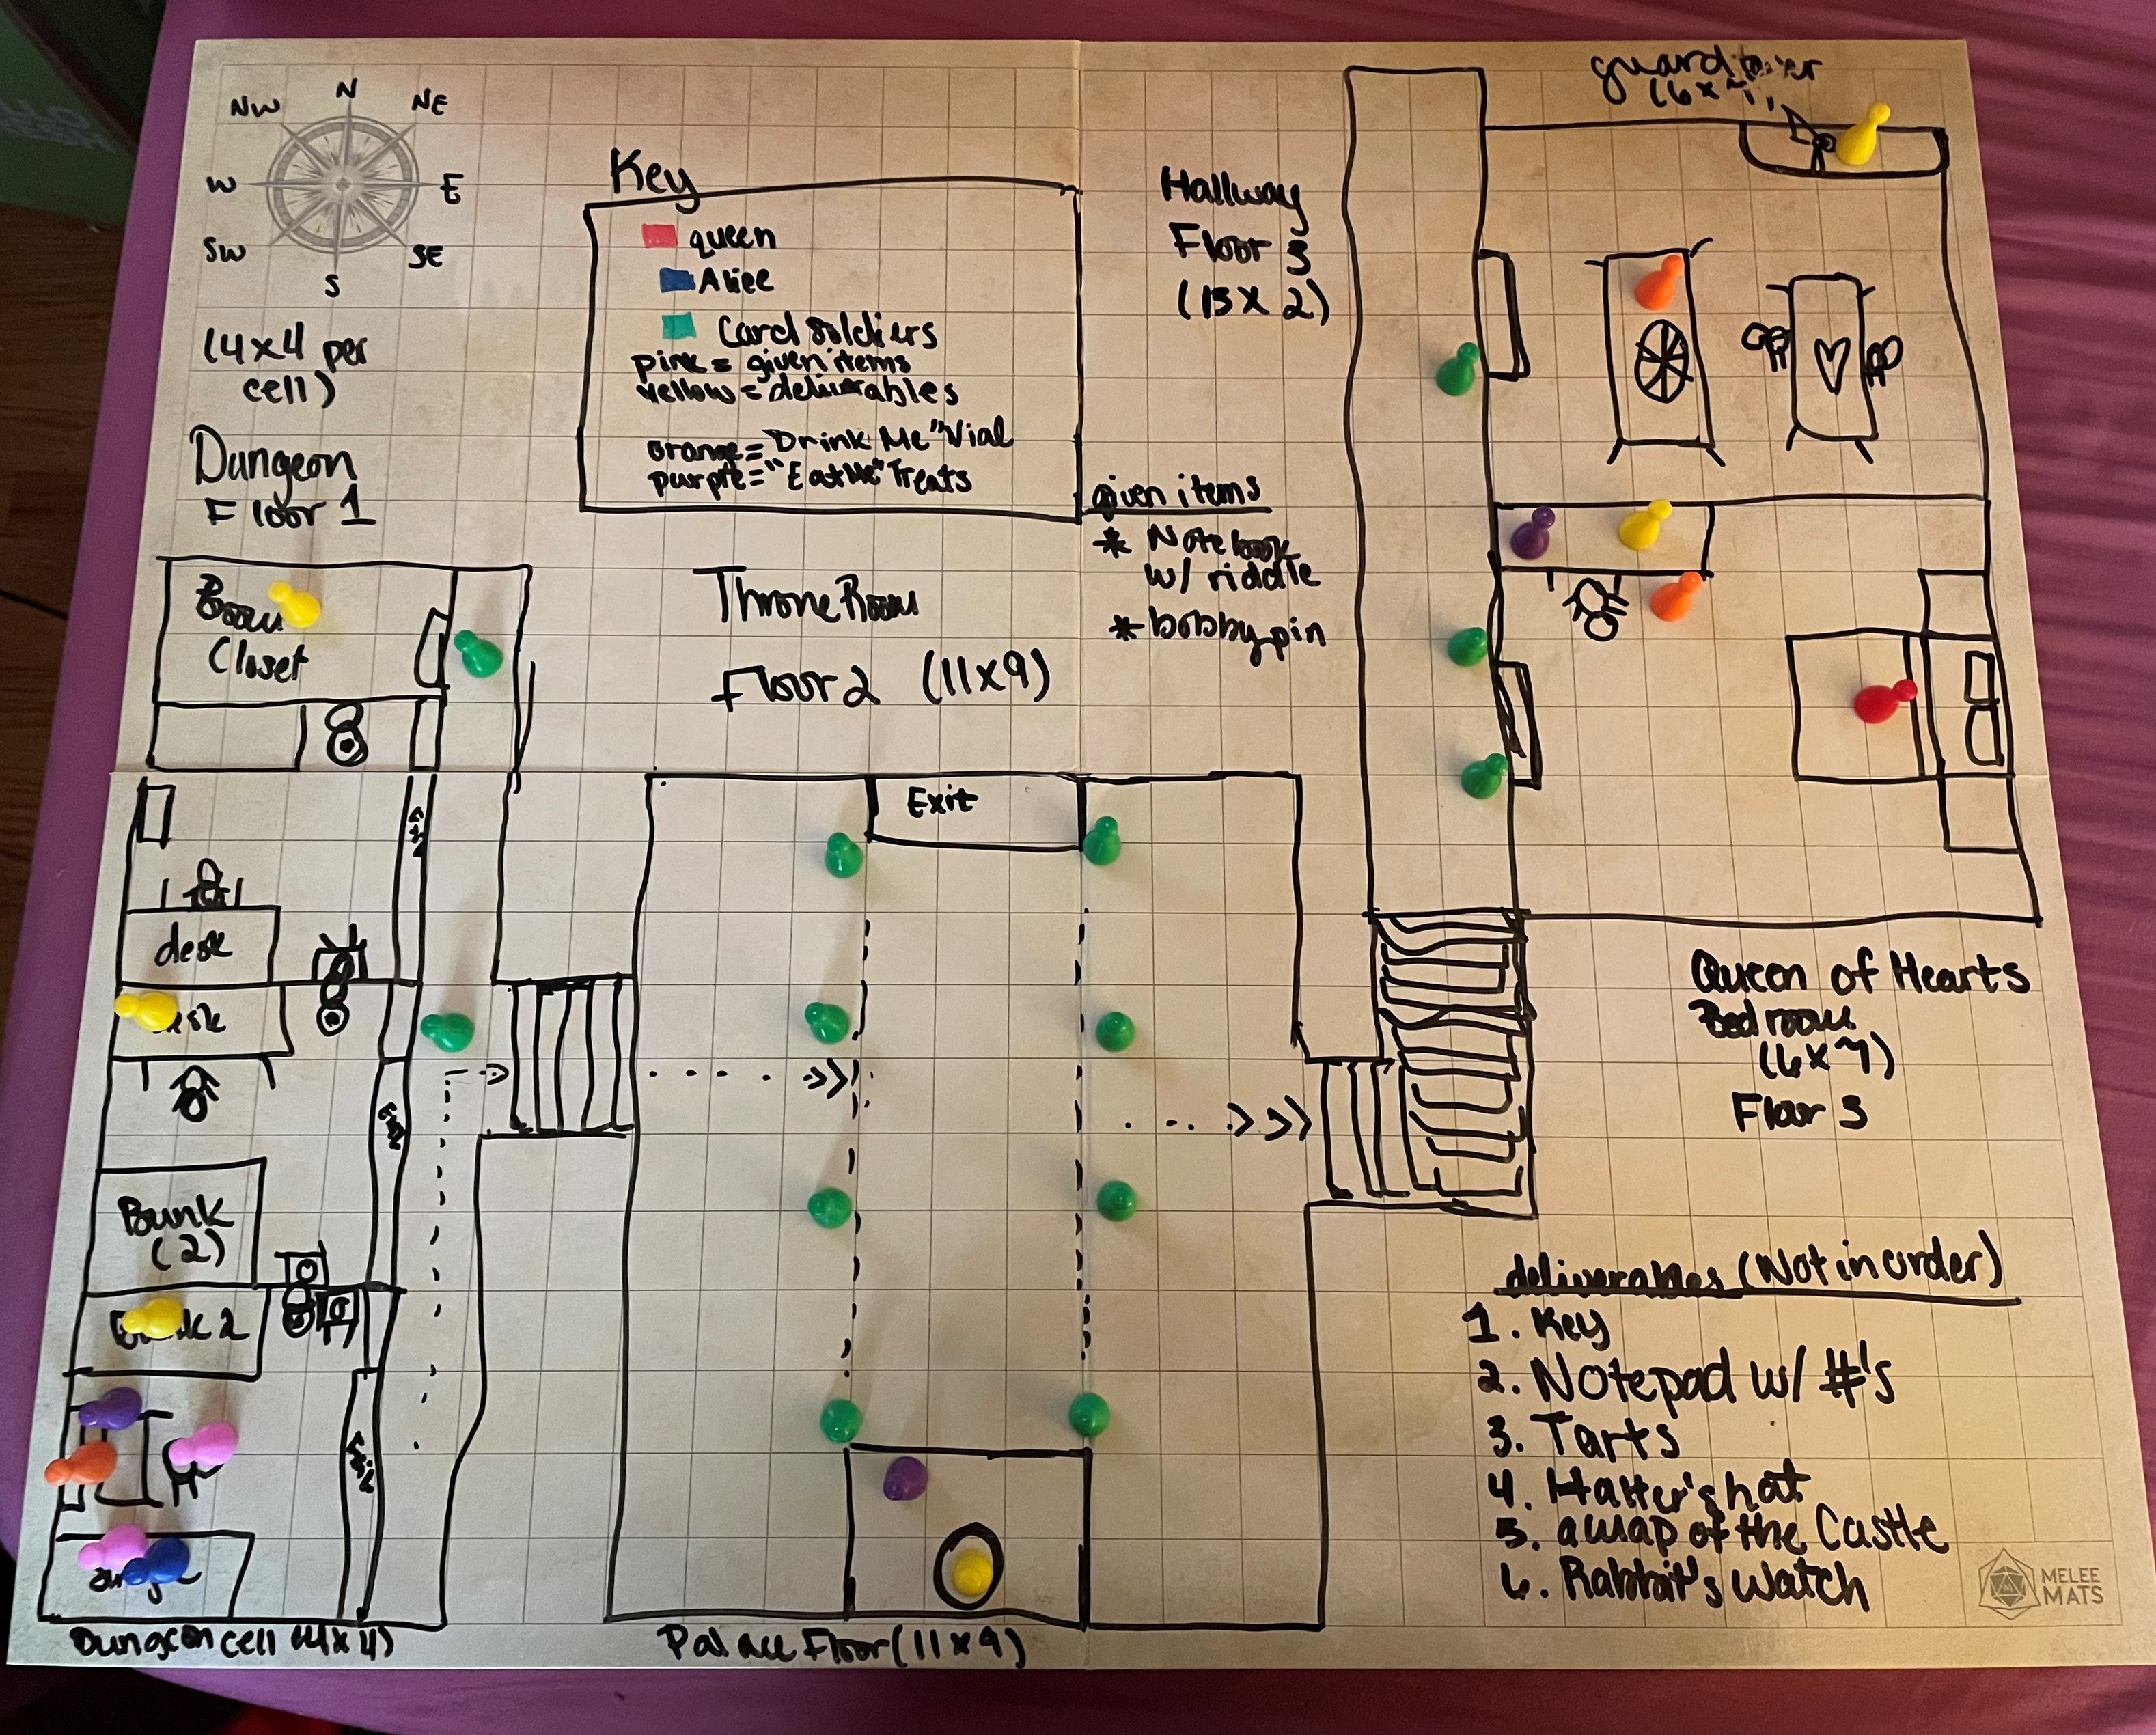 N
NW
NE
W
E
SW
SE
S
(4x4 per
cell)
Dungeon
Floor 1
Key
queen
Alice
Card soldiers
pink = given items
yellow = deliverables
orange = "Drink Me" Vial
purple = "Eat Me" Treats
Hallway
Floor 3
(13 x 2)
guard
(6 x
given items
* Notebook
w/ riddle
* bobby pin
Throne Room
Floor 2 (11x9)
Broom
Closet
Exit
desk
Bunk
(2)
2
Queen of Hearts
Bedroom
(6x7)
Floor 3
deliverables (Not in order)
1. Key
2. Notepad w/ #'s
3. Tarts
4. Hatter's hat
5. a map of the Castle
6. Rabbit's watch
Dungeon cell (4x4)
Palace Floor (11x9)
MELEE
MATS